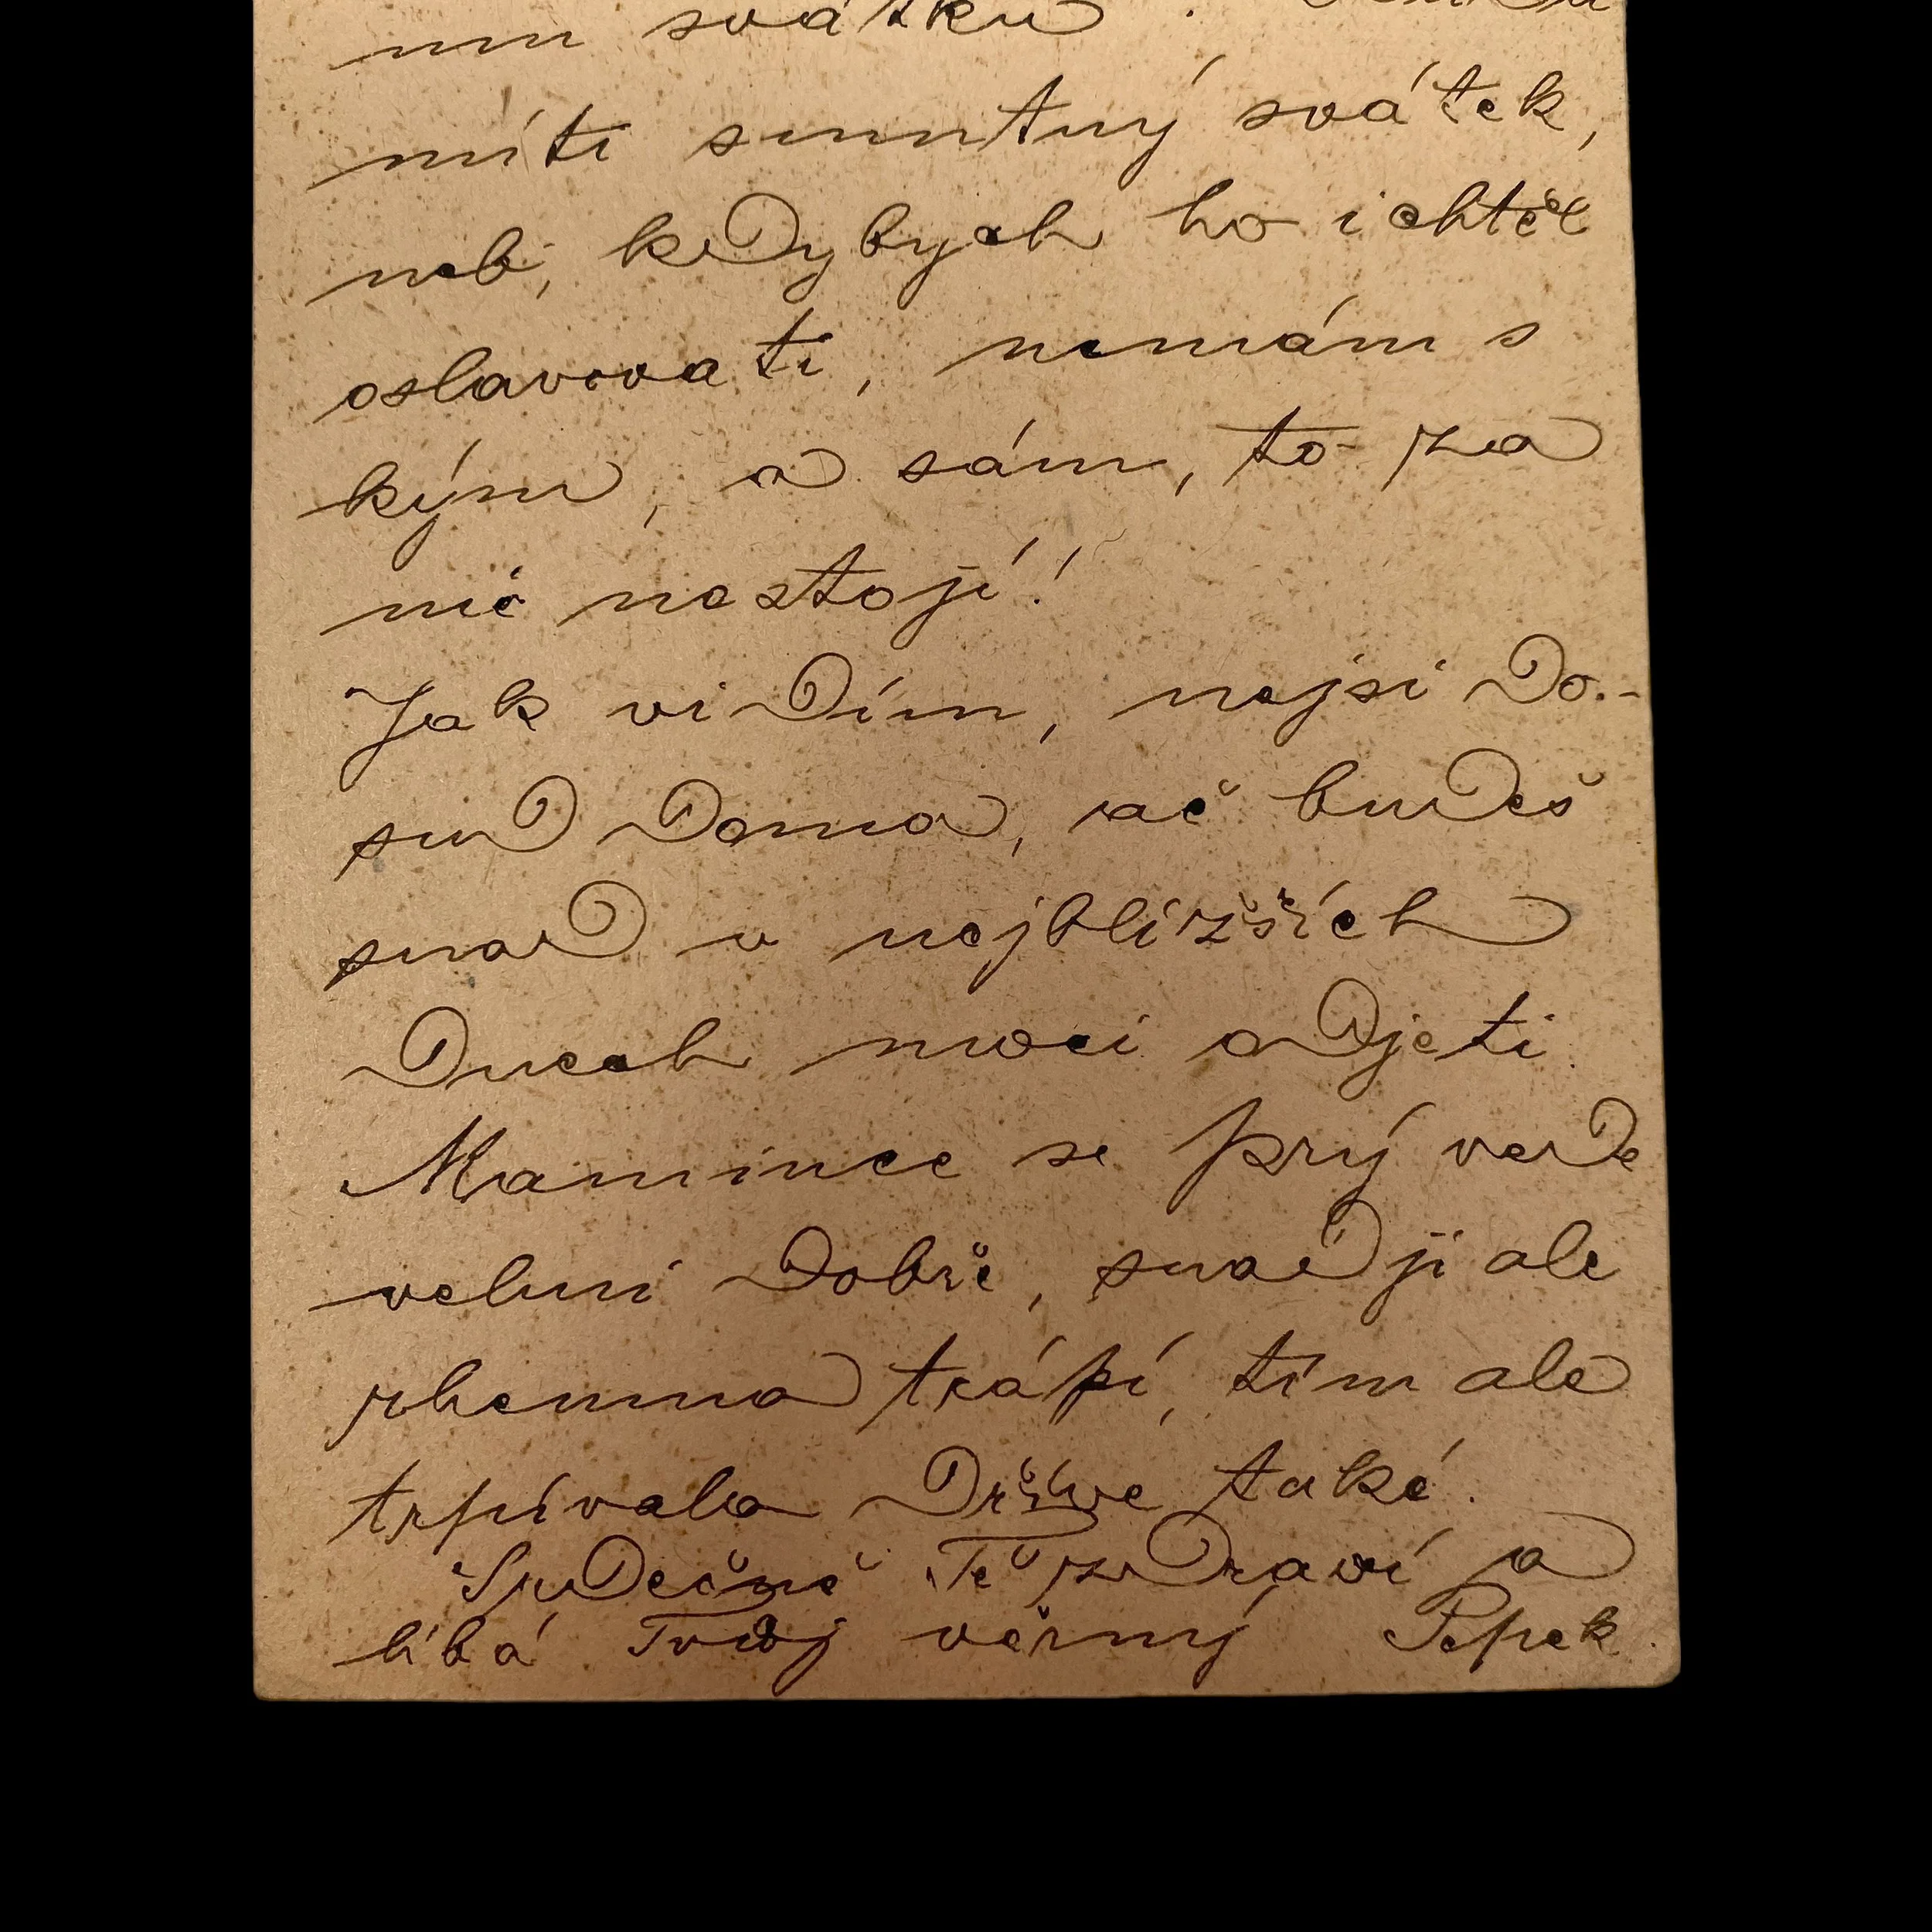 mu svátku.
míti smutný svátek,
neb, kdybych ho i chtěl
oslavovati, nemám s
kým, a sám, to za
nic nestojí!
Jak vidím, nejsi do-
sud doma, ač budeš
snad v nejbližších
dnech moci odjeti
Mamince se prý vede
velmi dobře, snad ji ale
rheuma trápí, tím ale
trpívala dříve také.
Srdečně Tě zdraví a
líbá Tvůj věrný Pepek.